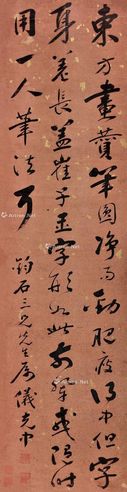 東方畫贊筆圓淨而勁肥瘦得中但字
身差長蓋崔子玉字形如此前輩或隨時
用一人筆法耳
鈞石三兄先生屬 儀克中